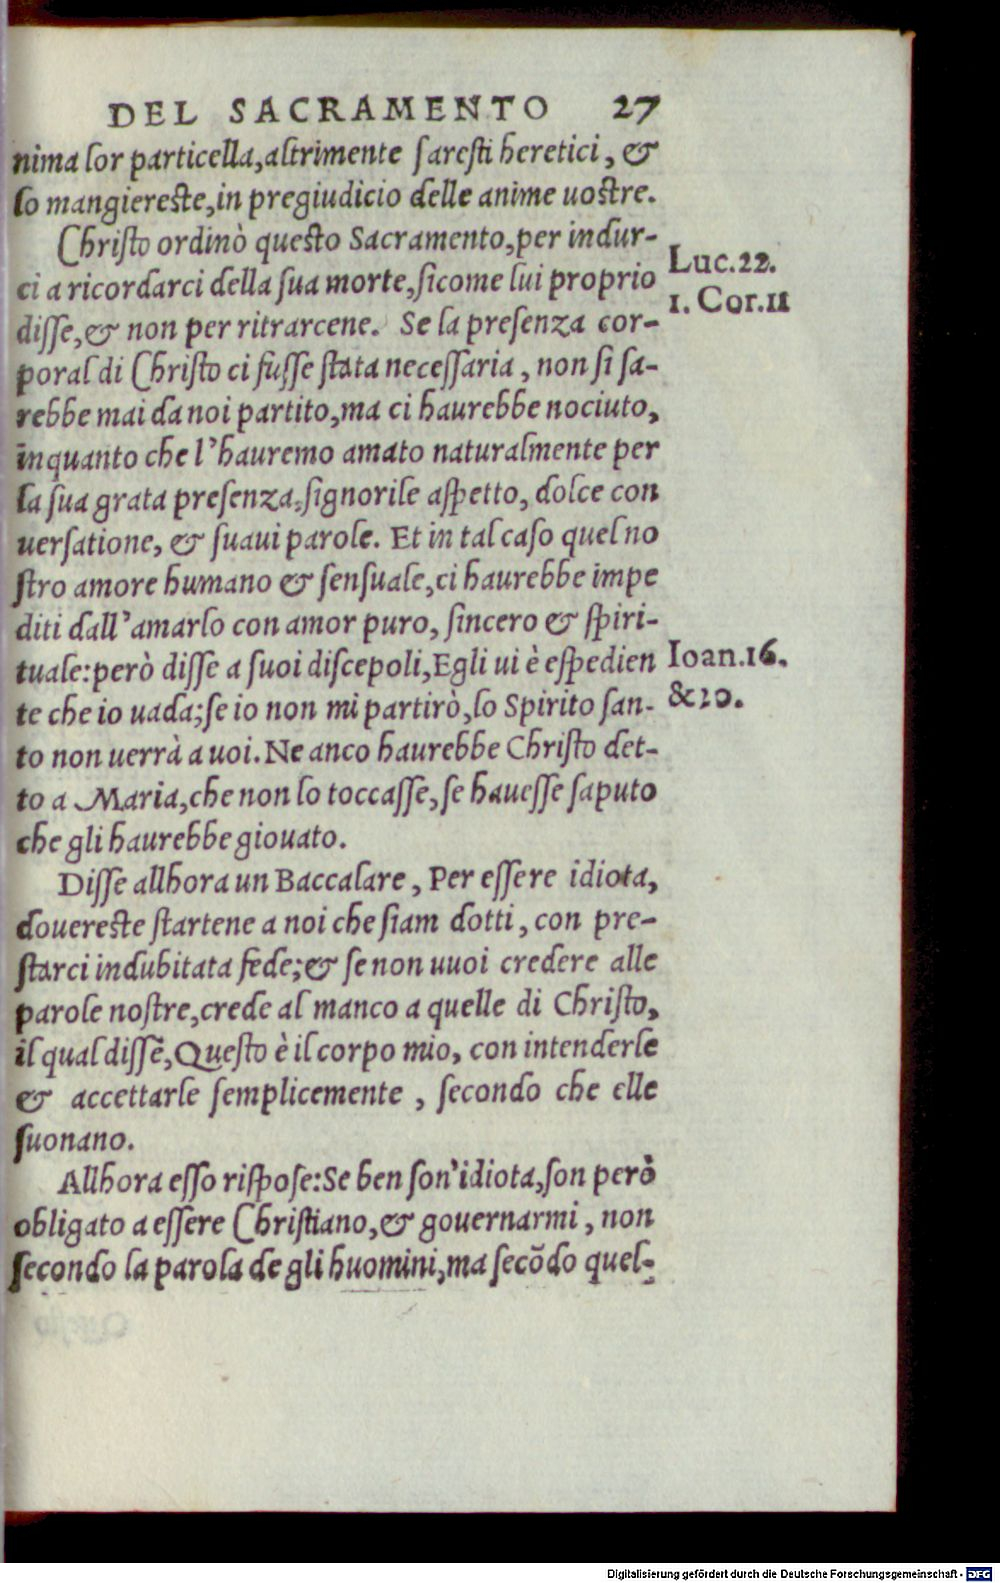 DEL SACRAMENTO 27
nima lor particella, altrimente saresti heretici, &
lo mangiereste, in pregiudicio delle anime uostre.
Christo ordinò questo Sacramento, per indur-
ci a ricordarci della sua morte, sicome lui proprio
disse, & non per ritrarcene. Se la presenza cor-
poral di Christo ci fusse stata necessaria, non si sa-
rebbe mai da noi partito, ma ci haurebbe nociuto,
inquanto che l'hauremo amato naturalmente per
la sua grata presenza, signorile aspetto, dolce con
uersatione, & suaui parole. Et in tal caso quel no
stro amore humano & sensuale, ci haurebbe impe
diti dall'amarlo con amor puro, sincero & spiri-
tuale: però disse a suoi discepoli, Egli ui è espedien
te che io uada; se io non mi partirò, lo Spirito san-
to non uerrà a uoi. Ne anco haurebbe Christo det-
to a Maria, che non lo toccasse, se hauesse saputo
che gli haurebbe giouato.
Disse allhora un Baccalare, Per essere idiota,
douereste startene a noi che siam dotti, con pre-
starci indubitata fede; & se non uuoi credere alle
parole nostre, crede al manco a quelle di Christo,
il qual disse, Questo è il corpo mio, con intenderle
& accettarle semplicemente, secondo che elle
suonano.
Allhora esso rispose: Se ben son' idiota, son però
obligato a essere Christiano, & gouernarmi, non
secondo la parola de gli huomini, ma secõdo quel-
Luc. 22.
1. Cor. 11
Ioan. 16.
& 20.
Digitalisierung gefördert durch die Deutsche Forschungsgemeinschaft - DFG